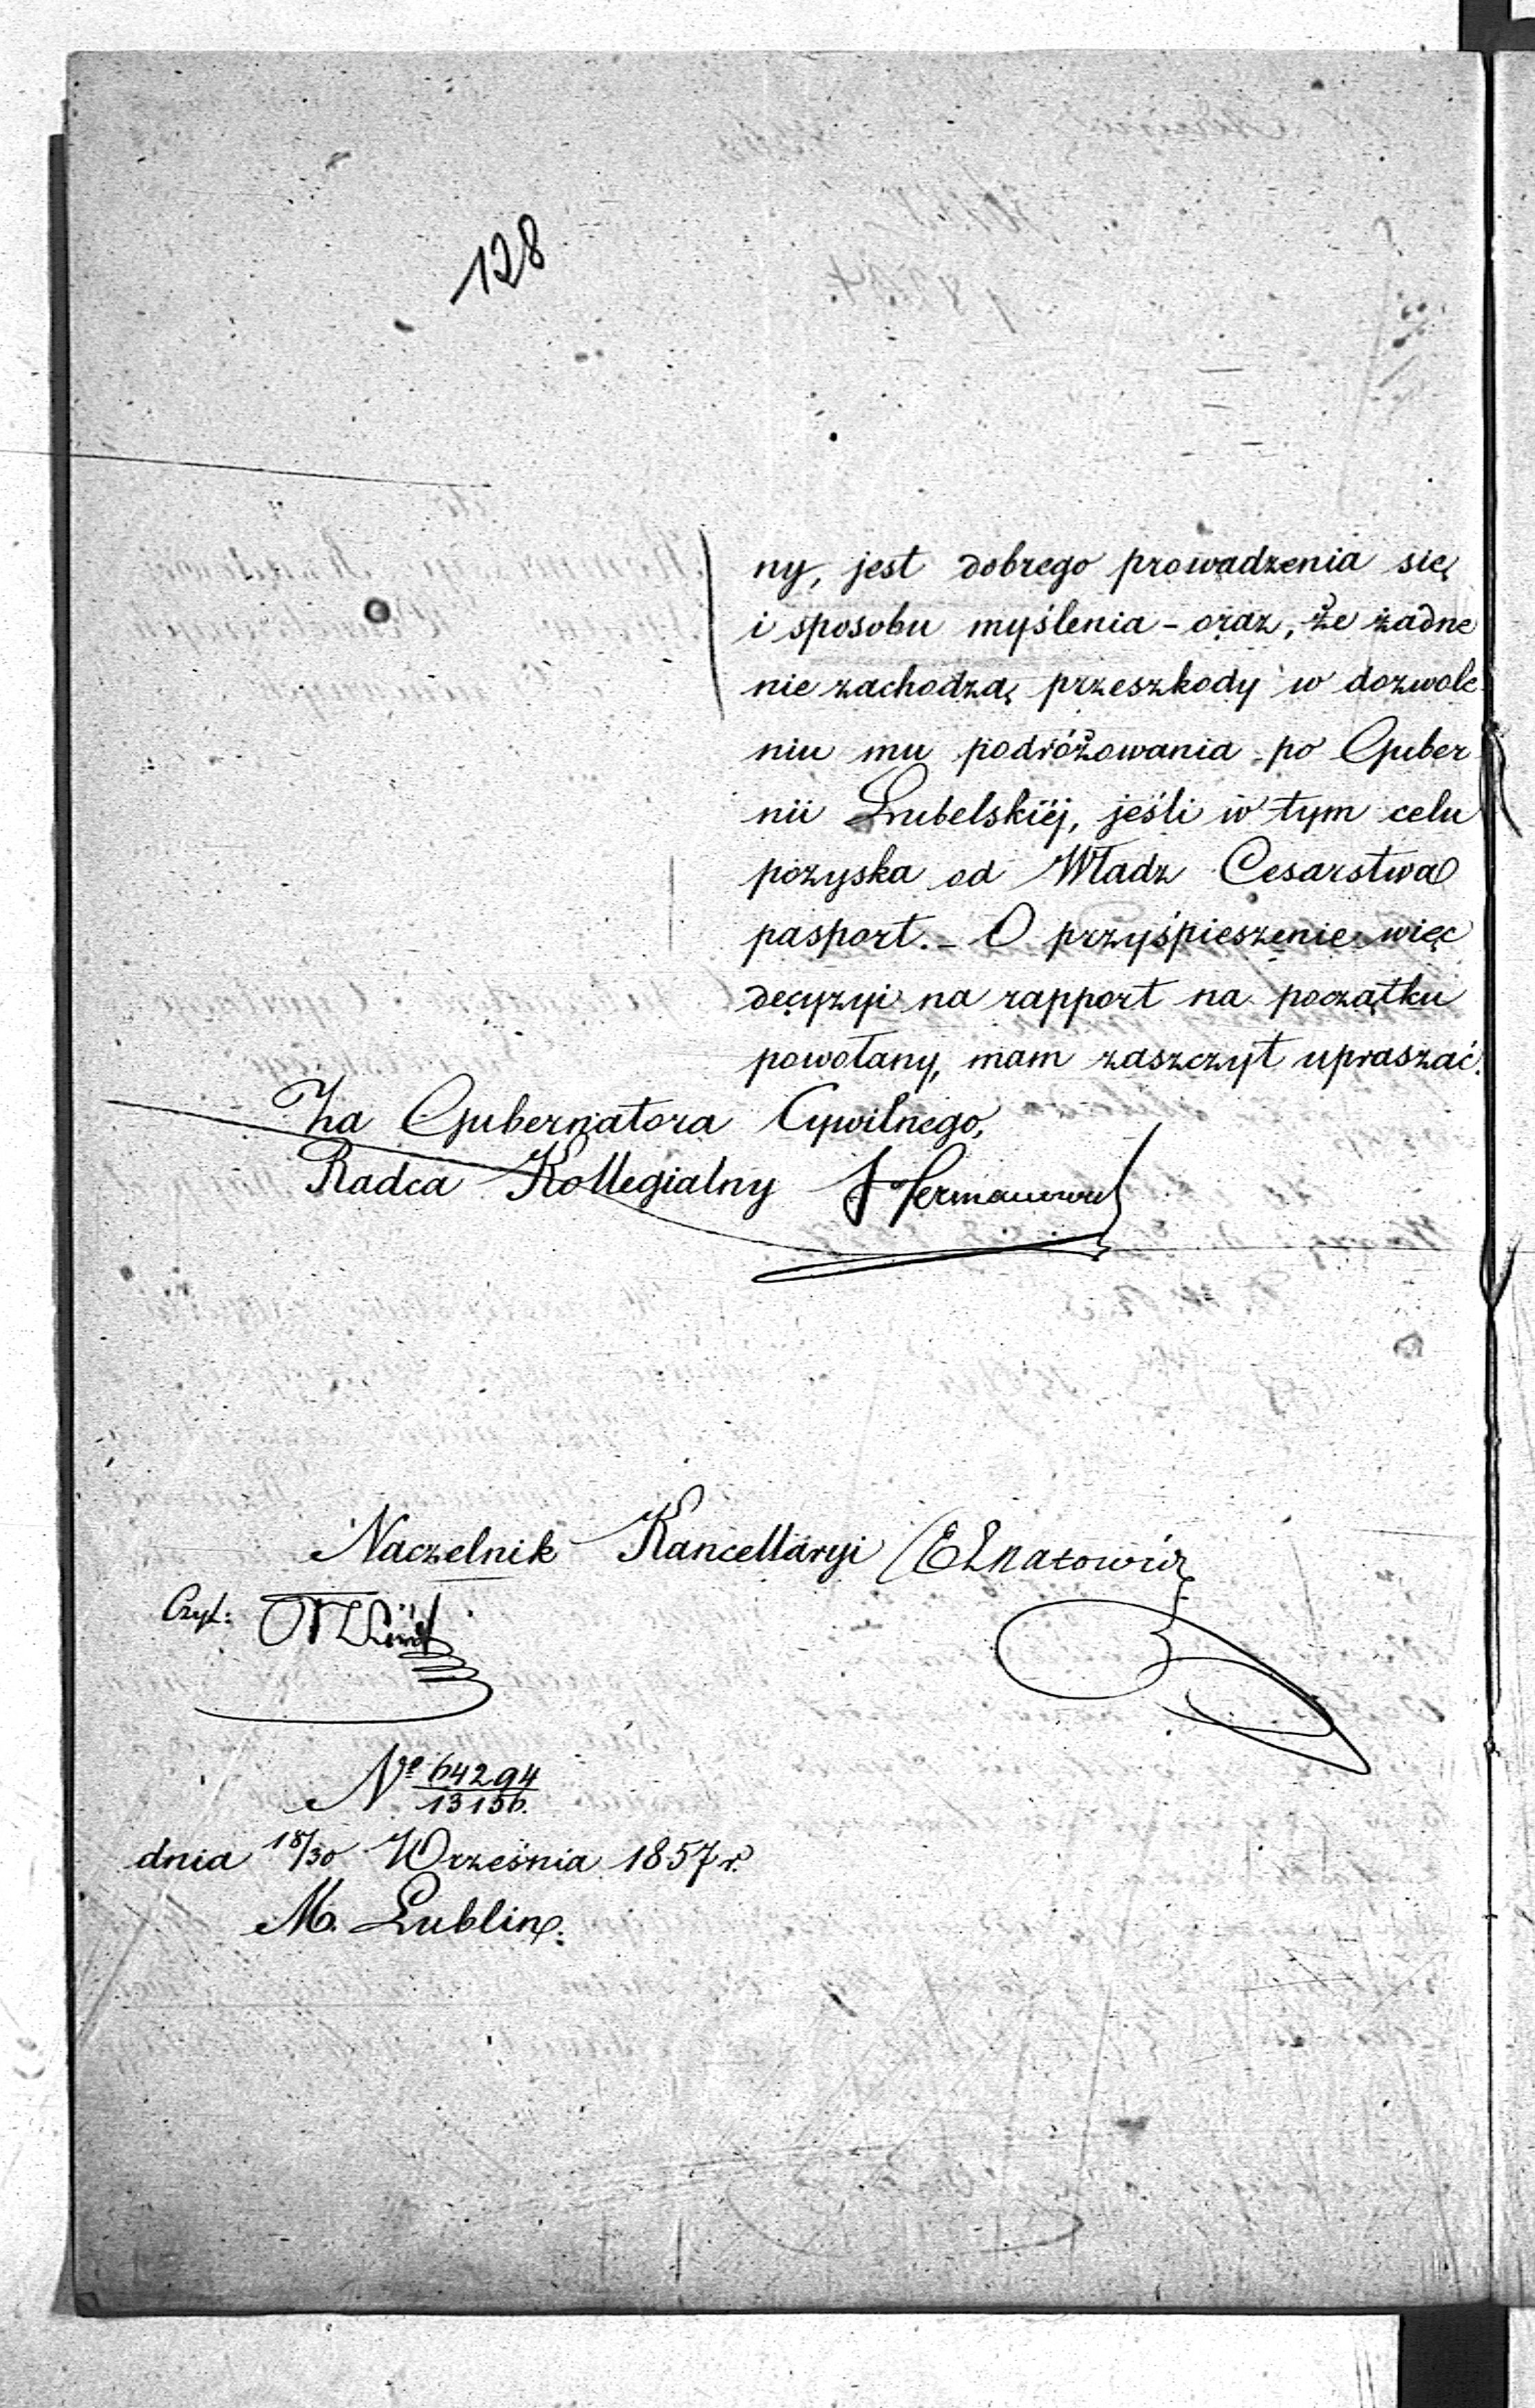 128
ny, jest dobrego prowadzenia się
i sposobu myślenia - oraz, że żadne
nie zachodzą przeszkody w dozwole
niu mu podróżowania po Guber
nii Lubelskiéj, jeśli w tym celu
pozyska od Władz Cesarstwa
pasport. - O przyśpieszenie więc
decyzyi na rapport na początku
powołany, mam zaszczyt upraszać.
Za Gubernatora Cywilnego,
Radca Kollegialny
Naczelnik Kancellaryi
Czyt:
No 64294
13156.
dnia 18/30 Września 1857 r.
M. Lublin.